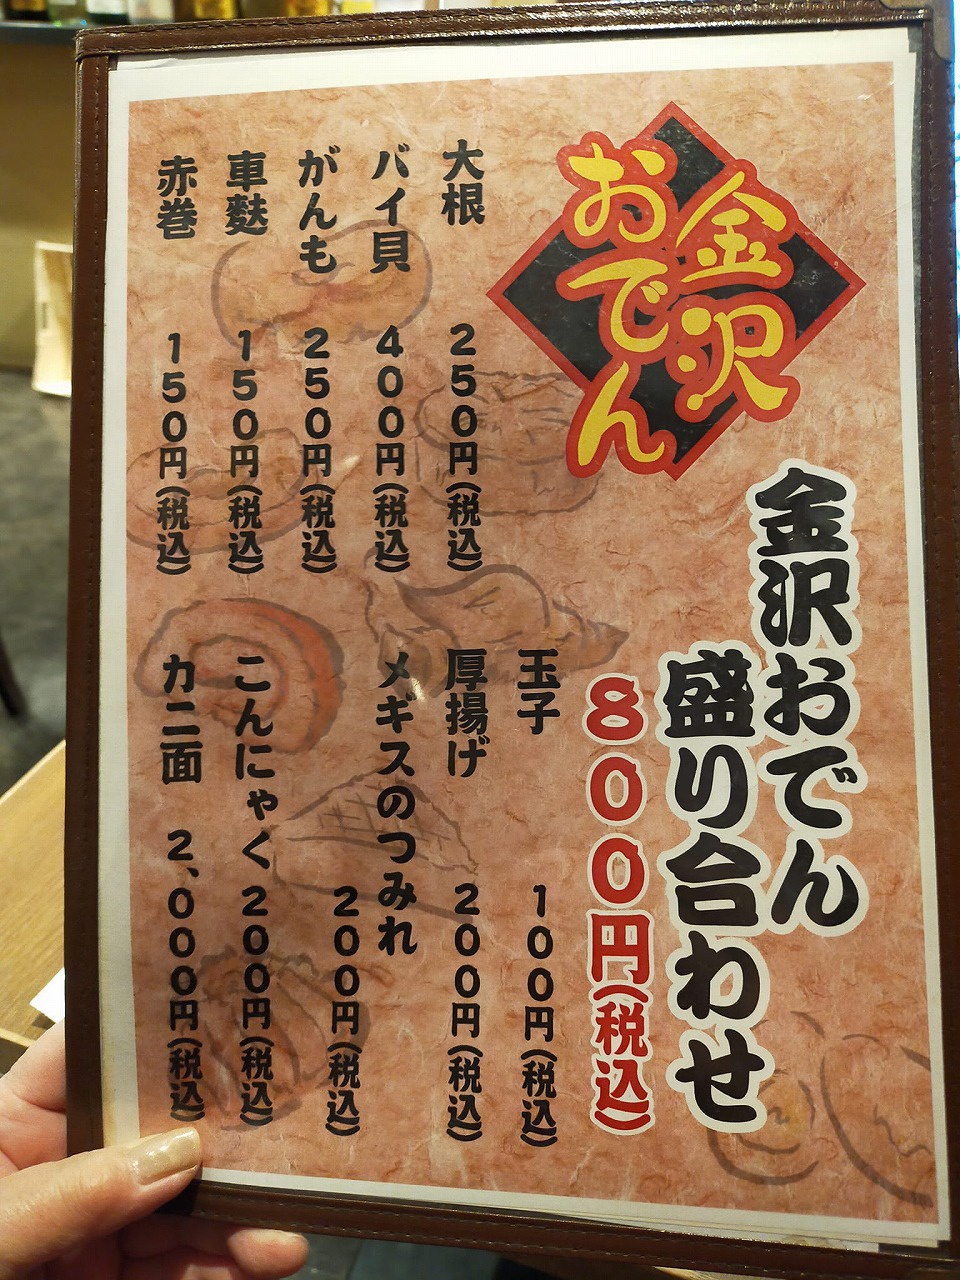 金沢
おでん
金沢おでん
盛り合わせ
800円(税込)
大根 250円(税込)
バイ貝 400円(税込)
がんも 250円(税込)
車麩 150円(税込)
赤巻 150円(税込)
玉子 100円(税込)
厚揚げ 200円(税込)
メギスのつみれ
200円(税込)
こんにゃく 200円(税込)
カニ面 2,000円(税込)